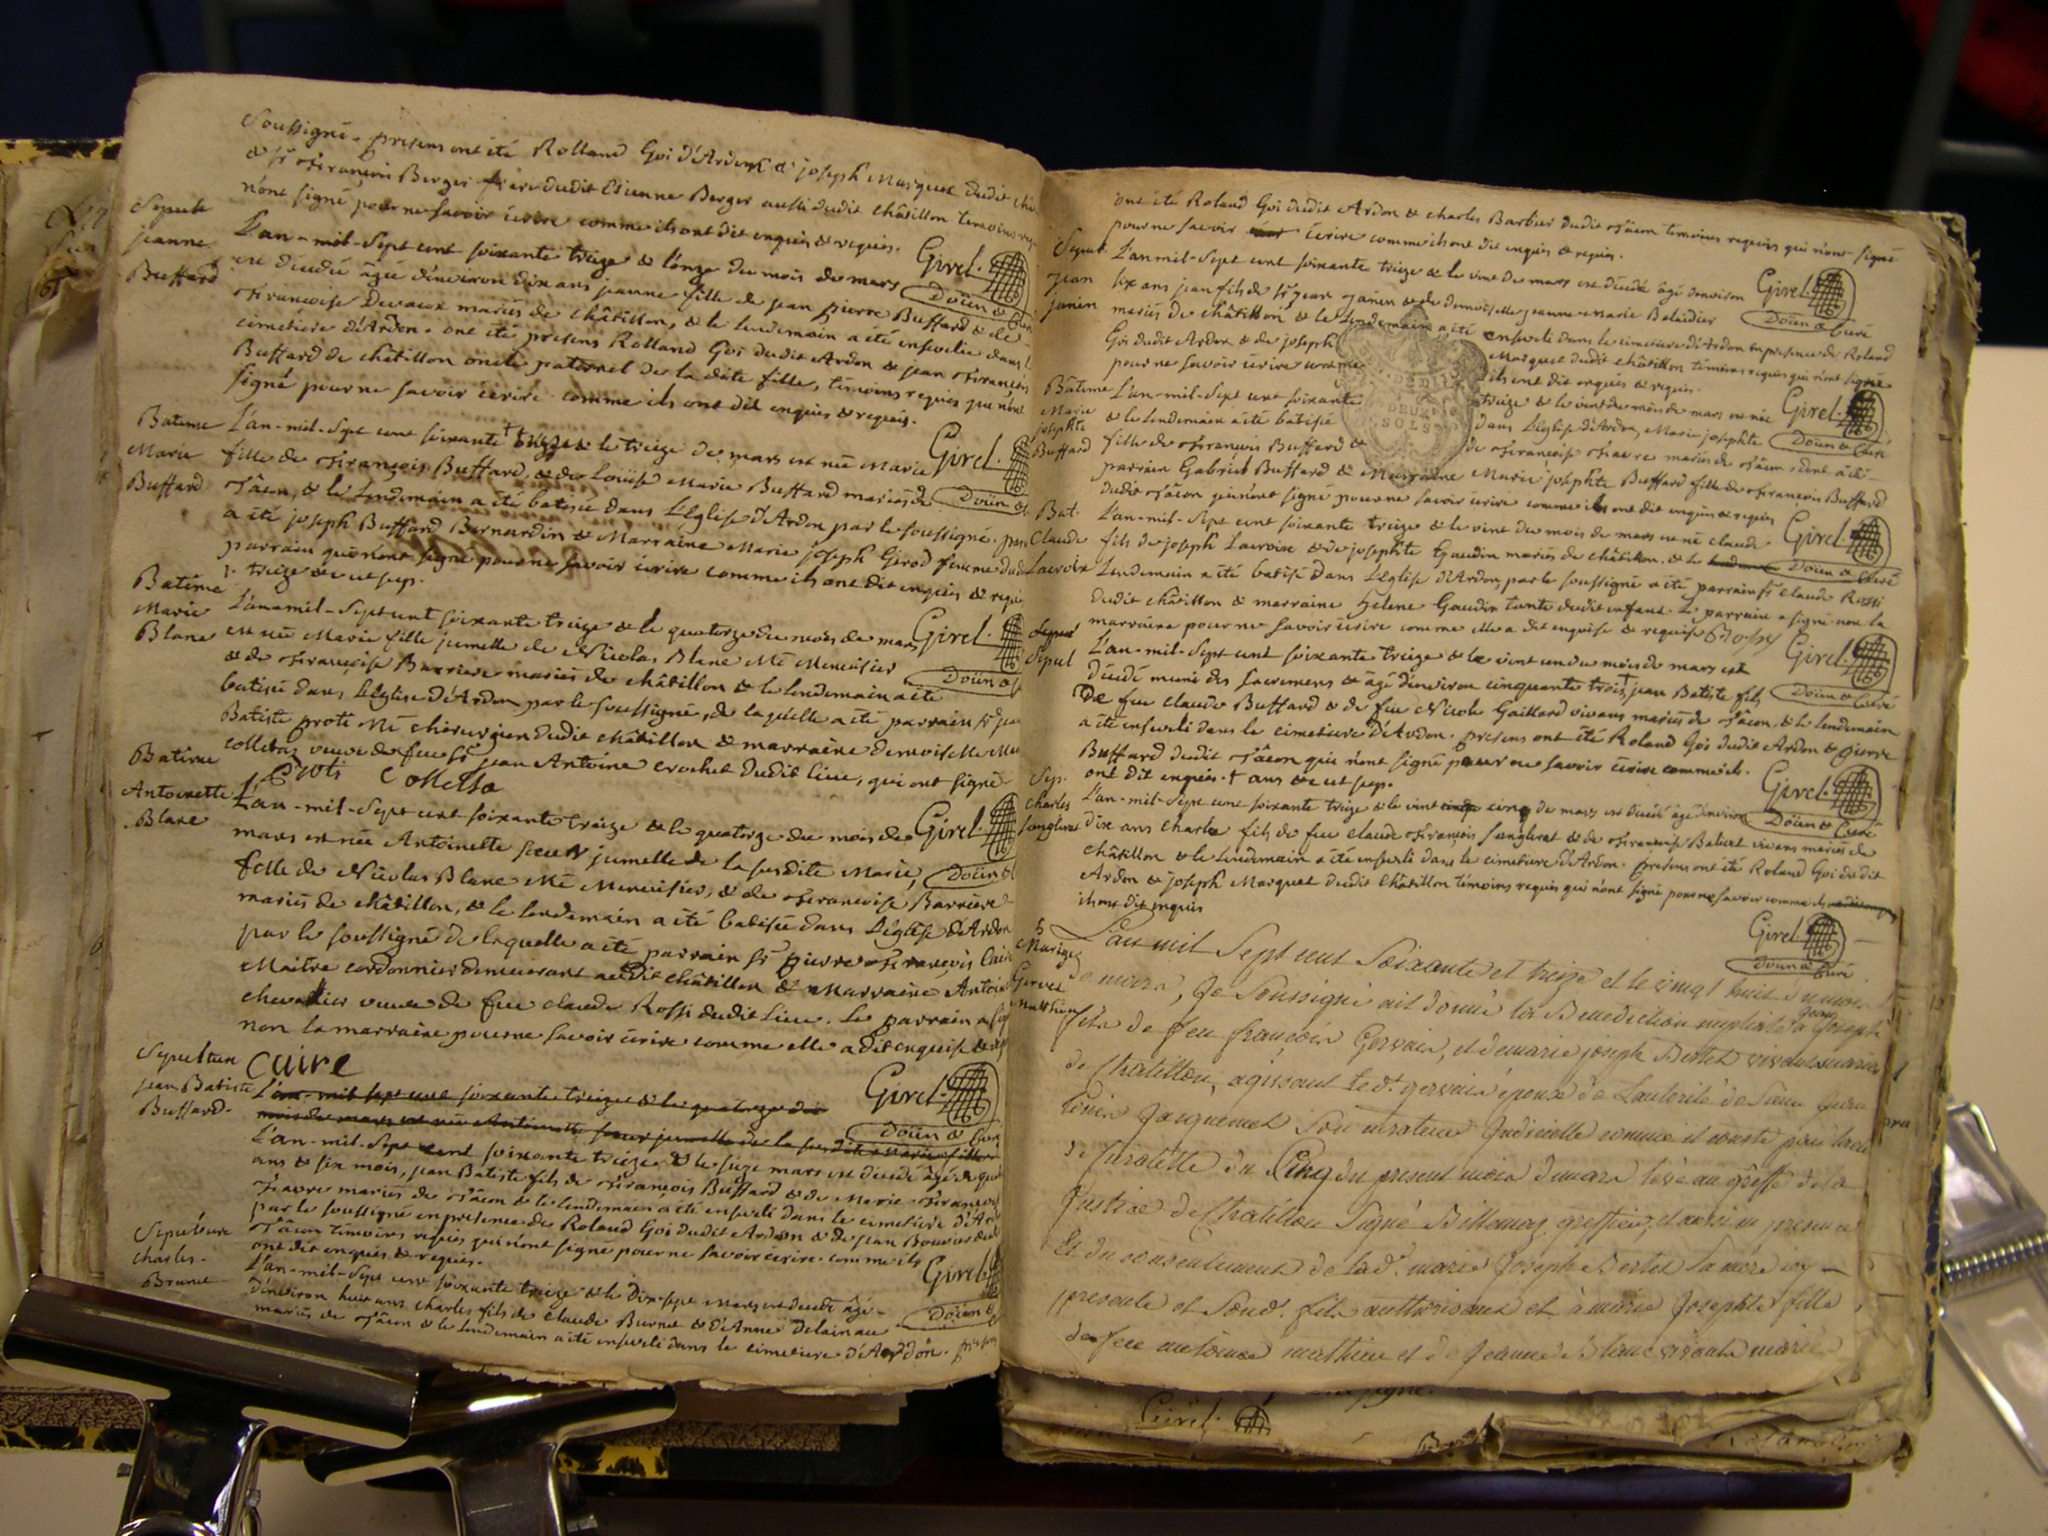 Soussigné. presens ont été Rolland Goi d'Ardon & joseph Marquet dudit
& Sr François Berger frère dudit Etienne Berger aussi dudit châtillon temoins
n'ont signé pour ne savoir écrire comme ils ont dit enquis & requis.
Girel.
Doüin & Curé
Sepult
jeanne
Buffard
L'an-mil-Sept cent soixante treize & l'onze du mois de mars
est décédé âgée d'environ dix ans jeanne fille de jean pierre Buffard & de
Françoise Devaux mariés de châtillon, & le lendemain a été ensevelie dans
cimetière d'Ardon. ont été presens Rolland Goi dudit Ardon & jean François
Buffard de châtillon oncle paternel de la dite fille, témoins requis qui n'ont
signé pour ne savoir écrire comme ils ont dit enquis & requis.
Girel.
Doüin &
Batême
Marie
Buffard
L'an-mil-Sept cent soixante & le treize de mars est née Marie
fille de François Buffard & de Loüise Marie Buffard mariés de
Tâcon, & le lendemain a été batisée dans L'Eglise d'Ardon par le soussigné.
a été joseph Buffard Bernardin & Marraine Marie joseph Girod femme dud
parrain qui n'ont signé pour ne savoir écrire comme ils ont dit enquis & requis
treize & ut sup.
Girel.
Doüin &
Batême
Marie
Blanc
L'an-mil-Sept cent soixante treize & le quatorze du mois de mars
est née Marie fille jumelle de Nicolas Blanc Me Menuisier
& de Françoise Barriere mariés de châtillon & le lendemain a été
batisée dans L'Eglise d'Ardon par le soussigné, de laquelle a été parrain Sr jean
Batiste proti Me chirurgien dudit châtillon & marraine demoiselle
colletaz veuve de feu Sr jean Antoine crochet dudit lieu, qui ont signé.
Proti
Girel.
Doüin &
Batême
Antoinette
Blanc
L'an-mil-Sept cent soixante treize & le quatorze du mois de
mars est née Antoinette soeur jumelle de la susdite Marie,
fille de Nicolas Blanc Me Menuisier, & de Françoise Barriere
mariés de châtillon, & le lendemain a été batisée dans L'Eglise d'Ardon
par le soussigné de laquelle a été parrain Sr pierre François Caire
Maitre cordonnier demeurant audit châtillon & Marraine
chevalier veuve de feu claude Rossi dudit lieu. Le parrain a
non la marraine pour ne savoir écrire comme elle a dit enquise &
Caire
Girel.
Doüin & Curé
Sepulture
jean Batiste
Buffard.
L'an-mil sept cent soixante treize & le quatorze du
mois de mars est née Antoinette soeur jumelle de la susdite Marie fille
L'an-mil-Sept cent soixante treize & le seize mars est décédé âgé de
ans & six mois, jean Batiste fils de François Buffard & de Marie
Favre mariés de Tâcon & le lendemain a été enseveli dans le cimetière d'Ardon
par le soussigné en presence de Roland Goi dudit Ardon & de jean
Tâcon témoins requis qui n'ont signé pour ne savoir écrire comme ils
ont dit enquis & requis.
Girel.
Doüin &
Sepulture
charles
Brunet
L'an-mil-Sept cent soixante treize & le dix-sept Mars est décédé âgé
d'environ huit ans charles fils de claude Burnet & d'Anne
mariés de Tâcon & le lendemain a été enseveli dans le cimetiere d'Ardon.
ont été Roland Goi dudit Ardon & charles Barbier dudit Tâcon témoins requis qui n'ont signé
pour ne savoir écrire comme ils ont dit enquis & requis.
Girel.
Doüin & Curé
Sepult
jean
janin
L'an-mil-Sept cent soixante treize & le vint de mars est décédé âgé d'environ
six ans jean fils de Sr jean janin & de demoiselle jeanne-Marie
mariés de châtillon & le lendemain a été enseveli dans le cimetiere d'Ardon en presence de Roland
Goi dudit Ardon & de joseph Marquet dudit châtillon témoins requis qui n'ont signé
pour ne savoir écrire comme ils ont dit enquis & requis.
DEUX
SOLS
Girel.
Doüin & Curé
Batême
Marie
josephte
Buffard
L'an-mil-Sept cent soixante treize & le vint du mois de mars est née
& le lendemain a été batisée dans L'Eglise d'Ardon Marie josephte
fille de François Buffard & de Françoise Favre mariés de Tâcon dont a été
parrain Gabriel Buffard & Marraine Marie josephte Buffard fille de François Buffard
dudit Tâcon qui n'ont signé pour ne savoir écrire comme ils ont dit enquis & requis
Girel.
Doüin & Curé
Bat.
Claude
Lacroix
L'an-mil-Sept cent soixante treize & le vint du mois de mars est né claude
fils de joseph Lacroix & de josephte Gaudin mariés de châtillon. & le
Lendemain a été batisé dans L'Eglise d'Ardon, par le soussigné a été parrain Sr claude Rossi
dudit châtillon & marraine helene Gaudin tante dudit enfant. Le parrain a signé non la
marraine pour ne savoir écrire comme elle a dit enquise & requise Rossy
Girel.
Doüin & Curé
Sepul
L'an-mil-Sept cent soixante treize & le vint un du mois de mars est
décédé muni des sacremens & âgé d'environ cinquante trois † jean Batiste fils
De feu claude Buffard & de feu Nicole Gaillard vivans mariés de Tâcon. & le lendemain
a été enseveli dans le cimetiere d'Ardon. presens ont été Roland Goi dudit Ardon & pierre
Buffard dudit Tâcon qui n'ont signé pour ne savoir écrire comme ils
ont dit enquis. † ans & ut sup.
Girel.
Doüin & Curé
Sep.
Charles
L'an-mil-Sept cent soixante treize & le vint cinq de mars est décédé âgé d'environ
dix ans charles fils de feu claude François & de Françoise vivans mariés de
châtillon & le lendemain a été enseveli dans le cimetiere d'Ardon. presens ont été Roland Goi dudit
Ardon & joseph Marquet dudit châtillon témoins requis qui n'ont signé pour ne savoir comme ils
ont dit enquis
Girel.
Doüin & Curé
Mariage
Gervais
Matthieu
L'an mil Sept cent Soixante et treize et le vingt huit du mois
de mars, Je Soussigné ait donné la Benediction nuptiale à jean Joseph
fils de feu françois Gervais, et de marie joseph Bertet vivants mariés
de Chatillon, agissant led. gervais époux de l'autorité de Sieur
Jacquemet Son curateur Judicielle comme il conste par
de Curatelle du Cinq du present mois de mars levé au greffe de la
Justice de Chatillon Signé Billemaz greffier, et aussi en presence
Et du consentement de lad. marie Joseph Bertet sa mere icy
presente et Sond. fils authorisant et à marie Josephte fille
de feu antoine mathieu et de Jeanne Blanc vivants mariés
Girel.